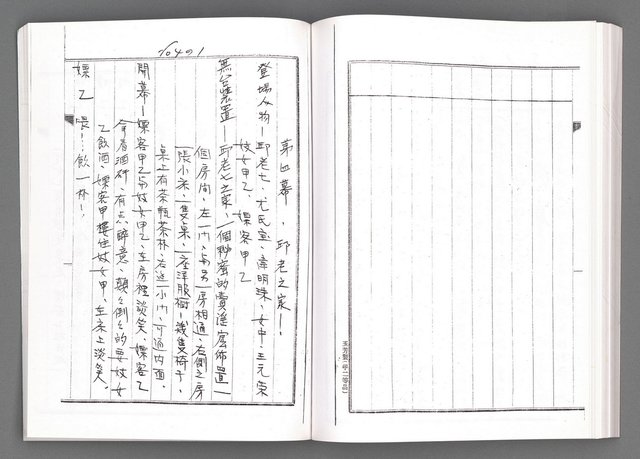 10401
第四幕．邱老之家——
登場人物—邱老七、尤氏宝、韋明珠、女中、王元荣
妓女甲乙、嫖客甲乙
無台裝置—邱老七之家、一個秘密的賣淫窟佈置—
個房间、左一内、与另一房相通、右側之房
一張小床、一隻桌、一座洋服橱—幾隻椅子、
桌上有茶瓶茶杯、右边一小门、可通内面、
開幕—嫖客甲乙与妓女甲乙、左房裡談笑、嫖客乙
拿着酒砕、有点醉意、顛々倒々的要妓女
乙飲酒、嫖客甲摟住妓女甲、在床上談笑、
嫖乙 喂⋯飲一杯⋯